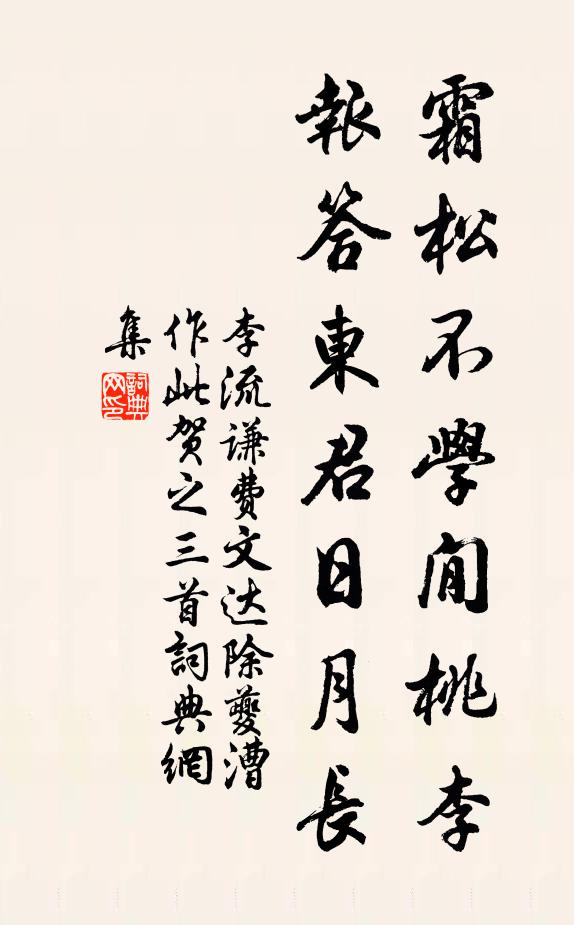 霜松不學閒桃李
報答東君日月長
李流謙費文达除夔漕
作此贺之三首詞典網
集
詞典
网印